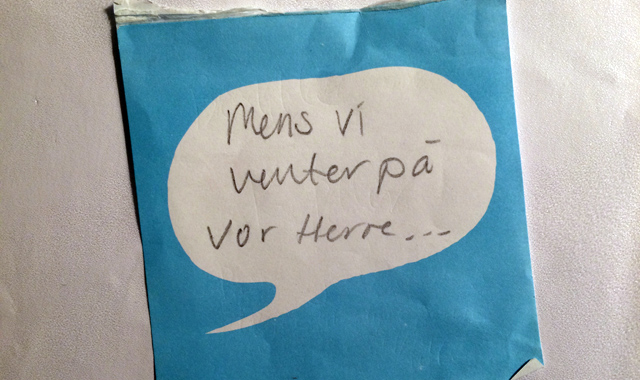 Mens vi
venter på
vor Herre...